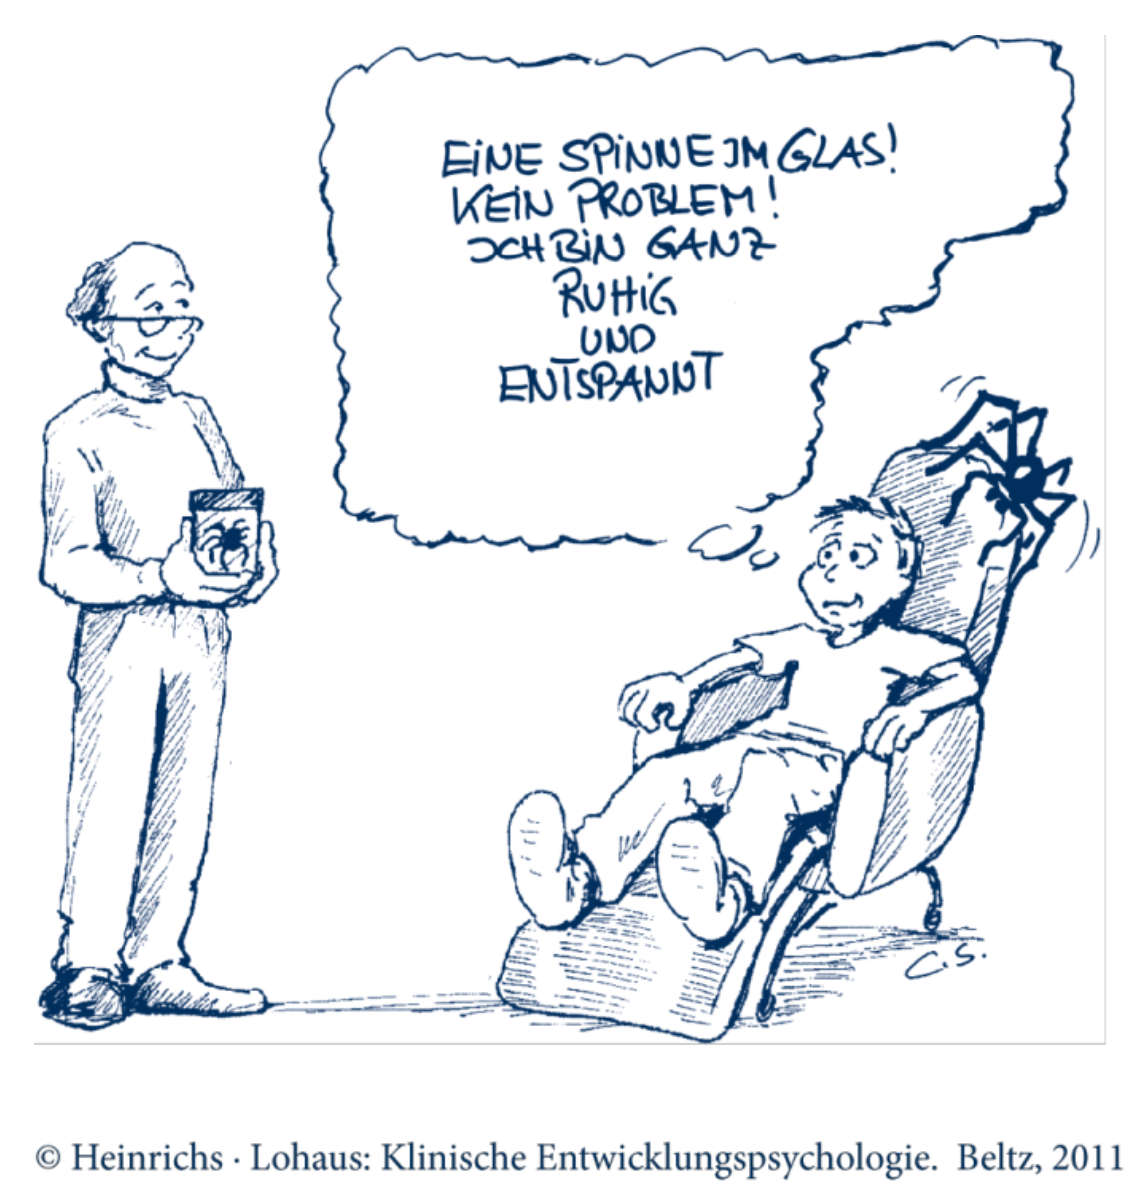 EINE SPINNE IM GLAS!
KEIN PROBLEM!
ICH BIN GANZ
RUHIG
UND
ENTSPANNT
C.S.
© Heinrichs · Lohaus: Klinische Entwicklungspsychologie. Beltz, 2011